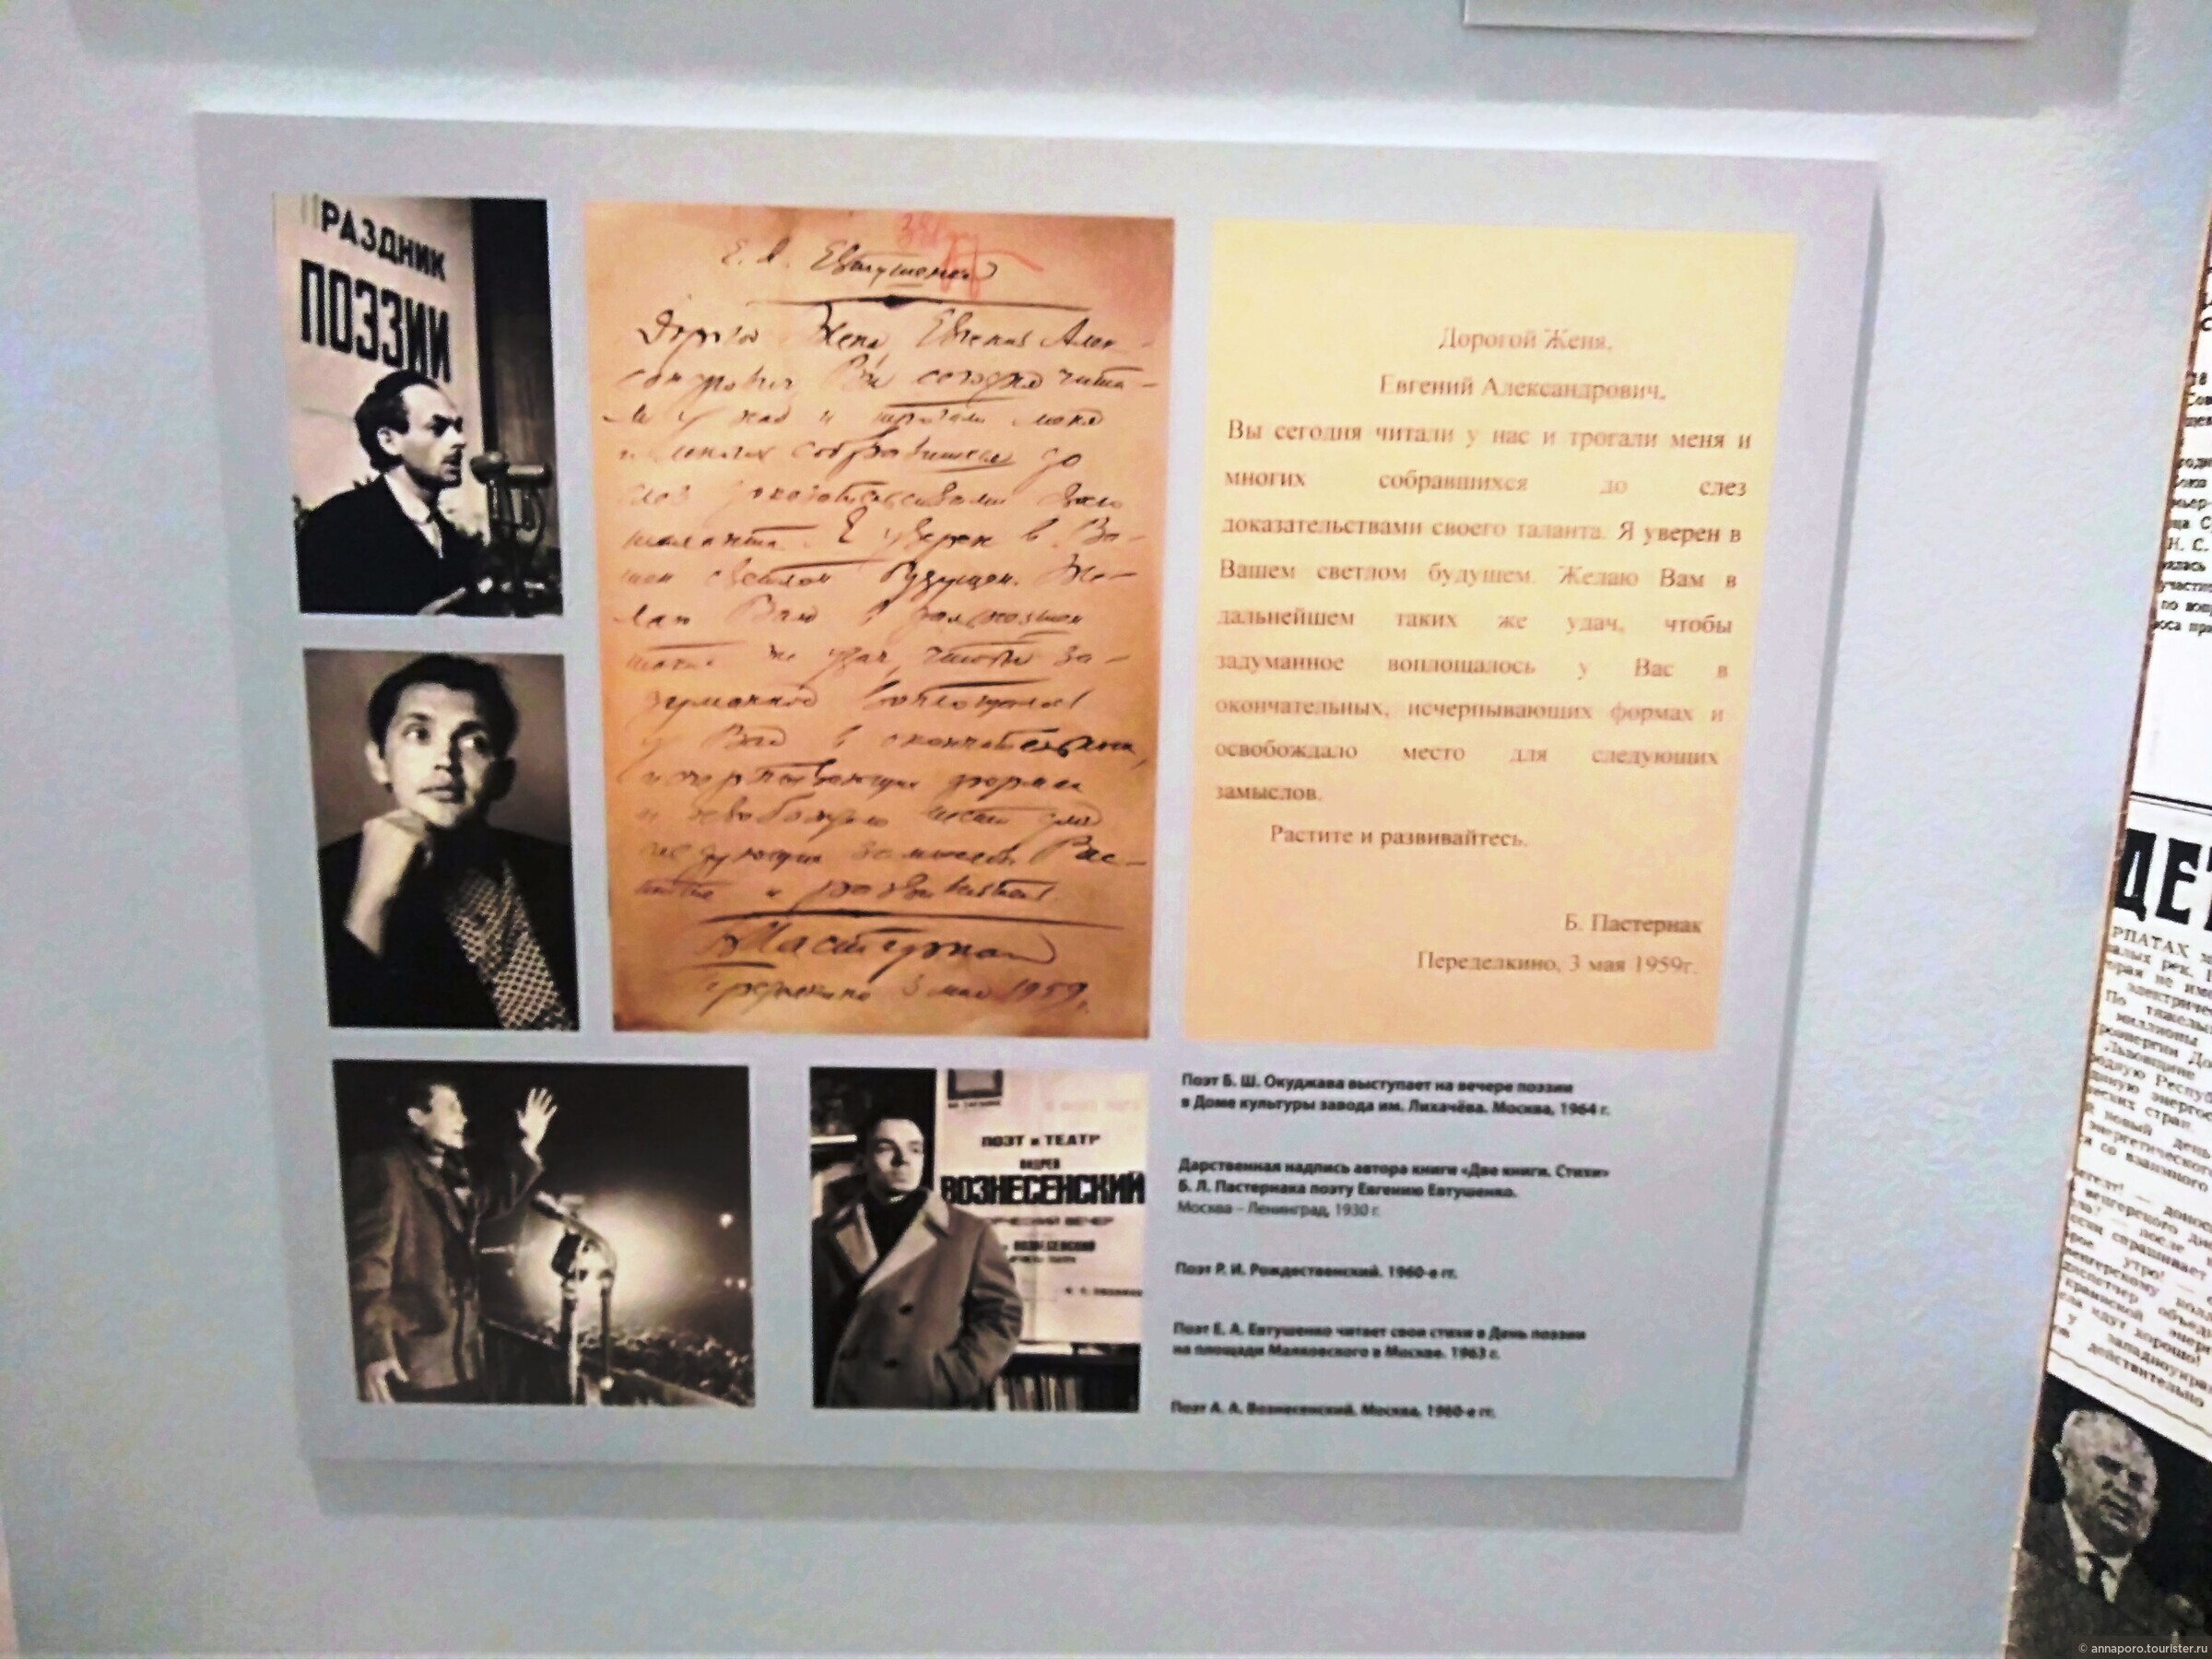 ПРАЗДНИК
ПОЭЗИИ
Е. А. Евтушенко
Дорогой Женя, Евгений Алек-
сандрович, Вы сегодня чита-
ли у нас и трогали меня
и многих собравшихся до
слез доказательствами своего
таланта. Я уверен в Ва-
шем светлом будущем. Же-
лаю Вам в дальнейшем
таких же удач, чтобы за-
думанное воплощалось
у Вас в окончательных,
исчерпывающих формах
и освобождало место для
следующих замыслов. Рас-
тите и развивайтесь.
Б Пастернак
Переделкино 3 мая 1959 г.
Дорогой Женя,
Евгений Александрович,
Вы сегодня читали у нас и трогали меня и
многих собравшихся до слез
доказательствами своего таланта. Я уверен в
Вашем светлом будущем. Желаю Вам в
дальнейшем таких же удач, чтобы
задуманное воплощалось у Вас в
окончательных, исчерпывающих формах и
освобождало место для следующих
замыслов.
Растите и развивайтесь.
Б. Пастернак
Переделкино, 3 мая 1959г.
ПОЭТ и ТЕАТР
АНДРЕЙ
ВОЗНЕСЕНСКИЙ
ВЕЧЕР
ВОЗНЕСЕНСКИЙ
Поэт Б. Ш. Окуджава выступает на вечере поэзии
в Доме культуры завода им. Лихачёва. Москва, 1964 г.
Дарственная надпись автора книги «Две книги. Стихи»
Б. Л. Пастернака поэту Евгению Евтушенко.
Москва – Ленинград, 1930 г.
Поэт Р. И. Рождественский. 1960-е гг.
Поэт Е. А. Евтушенко читает свои стихи в День поэзии
на площади Маяковского в Москве. 1963 г.
Поэт А. А. Вознесенский. Москва, 1960-е гг.
Н. С.
по
ДЕТ
РПАТАХ
рек.
не
электричес
По
тяжелы
миллионы
Львовщине
новый день
энергетического
со взаимного
спрашивает
утро!
идут хорошо!
у
действительно
© annaporo.tourister.ru